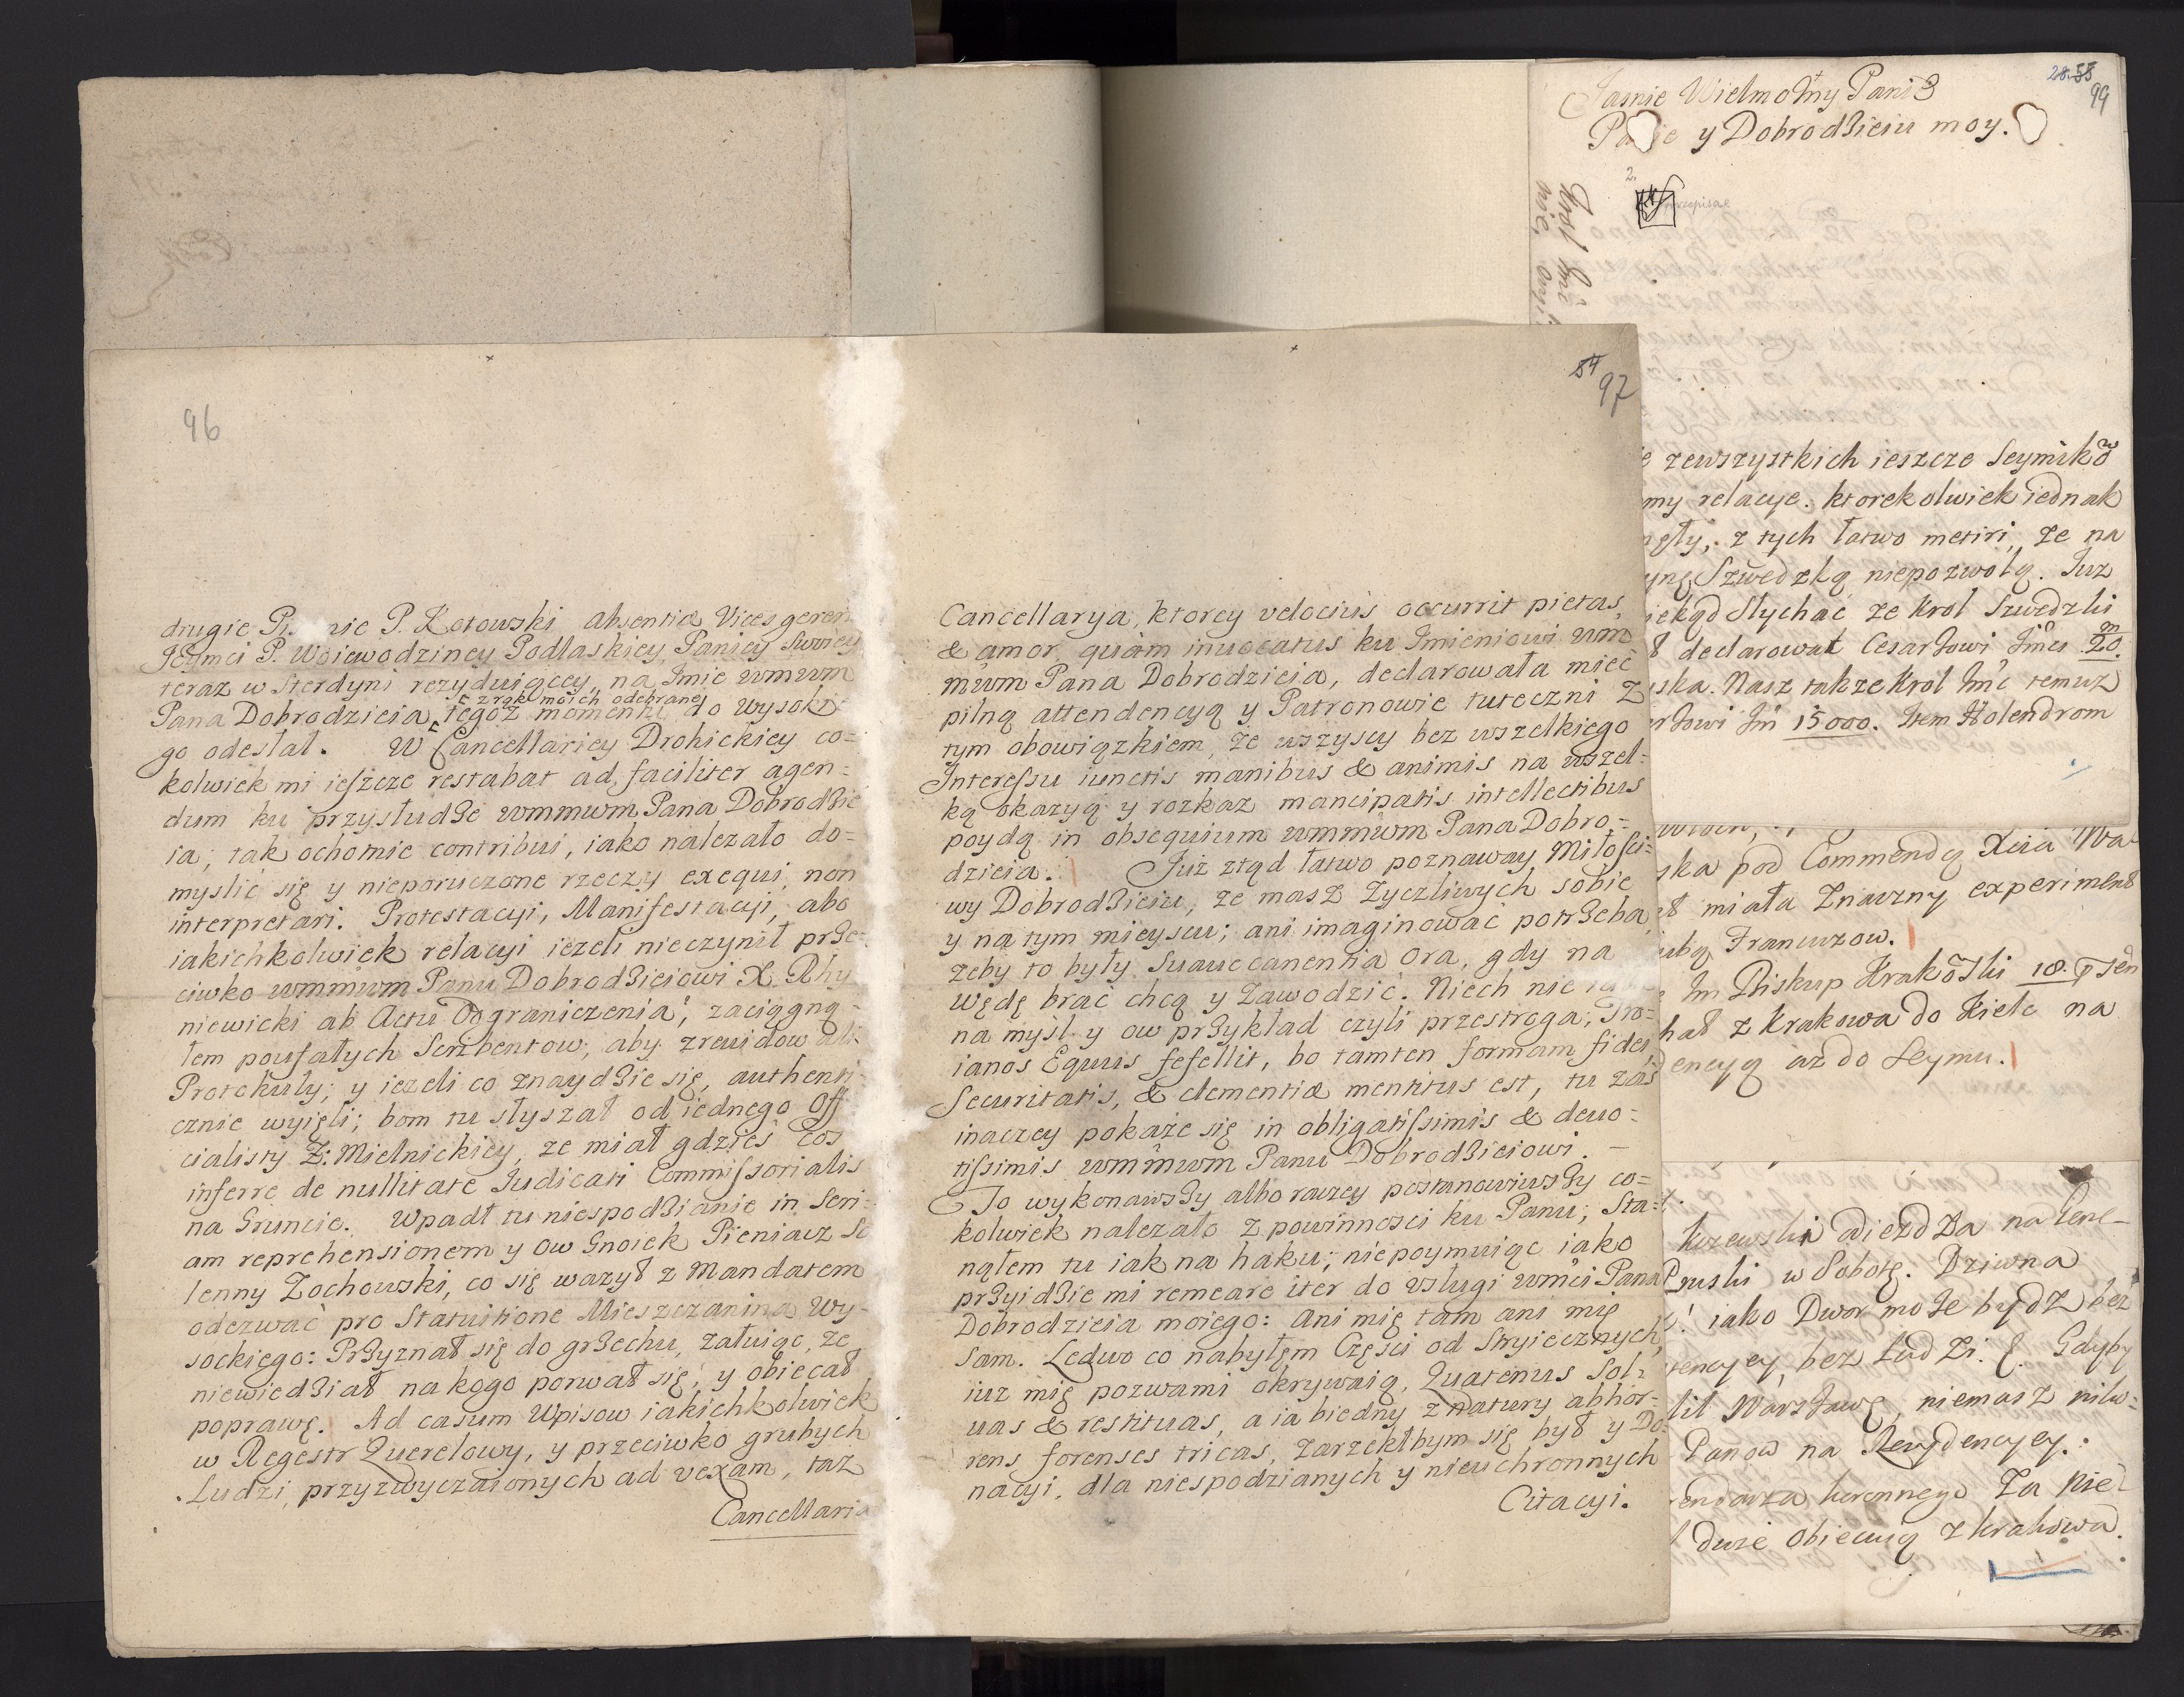 96
drugie Pi nie P. Kotowski absentia Vices geren
Jeymci P. Woiewodziney Podlaskiey, Paniey Swoiey
teraz w Sterdyni rezyduiącey, na Imie wmwm
z rąk moich odebrane
Pana Dobrodzieia, tegoż momentu do Wysoki
go odesłał. W Cancellariey Drohickiey co=
kolwiek mi ieszcze restabat ad faciliter agen=
dum ku przysłudze wmmwm Pana Dobrodzie
ia; tak ochotnie contribui, iako należało do=
myslić się y nieporuczone rzeczy exequi, non
interpretari. Protestacyi, Manifestacyi, abo
iakichkolwiek relacyi iezeli nieczynił prze=
ciwko wmmwm Panu Dobrodzieiowi X. Rhy
niewicki ab Actu Odgraniczenia; zaciągną=
łem poufałych Scribentow, aby zrewidowali
Protokuły; y iezeli co znaydzie się, authenti=
cznie wyięli; bom tu słyszał od iednego Offi
cialisty Z: Mielnickiey, ze miał gdzieś coś
inferre de nullitate Judicati Commissorialis
na Gruncie. Wpadł tu niespodzianie in Seri=
am reprehensionem y ow Gnoiek Pieniacz So
lenny Zochowski, co się ważył z Mandatem
odezwać pro Statuitione Mieszczanina Wy=
sockiego: Przyznał się do grzechu, załuiąc, ze
niewiedział na kogo porwał się; y obiecał
poprawę. Ad casum Wpisow iakichkolwiek
w Regestr Querelowy, y przeciwko grubych
Ludzi, przyzwyczaionych ad vexam, taż
Cancellaria
54
97
Cancellarya, ktorey velociùs occurrit pietas,
& amor, quàm inuocatus ku Imieniowi wm
mwm Pana Dobrodzieia, declarowała mieć
pilną attendencyą y Patronowie tuteczni z
tym obowiązkiem, że wszyscy bez wszelkiego
Interessu iunctis manibus & animis na wszel=
ką okazyą y rozkaz mancipatis intellectibus
poydą in obsequium wmmwm Pana Dobro=
dzieia. Już ztąd łatwo poznaway Miłości=
wy Dobrodzieiu, ze masz Zyczliwych sobie
y na tym mieyscu; ani imaginować potrzeba,
żeby to były Suaue canentia Ora, gdy na
Wędę brać chcą y Zawodzić. Niech nie
na myśl y ow przykład czyli przestroga, Tro=
ianos Equus fefellit, bo tamten formam fidei,
Securitatis, & clementiæ mentitus est, tu zaś
inaczey pokaże się in obligatissimis & deuo=
tissimis wmmwm Panu Dobrodzieiowi. –
To wykonawszy albo raczey postanowiwszy co=
kolwiek należało z powinności ku Panu; Sta=
nąłem tu iak na haku; niepoymuiąc iako
przyidzie mi remeare iter do Usługi wmci Pana
Dobrodzieia moiego: Ani mię tam ani mię
sam. Ledwo co nabyłem Części od Stryiecznych,
iuz mię pozwami okrywaią, Quatenus Sol=
uas & restituas, a ia biedny z natury abhor=
rens forenses tricas, zarzekłbym się był y Do
nacyi, dla niespodzianych y nieuchronnych
Citacyi.
28. 55
99
Jasnie Wielmożny Panie
Pa ie y Dobrodzieiu moy.
2.
przepisac
Krol Imć
nie
e zewszystkich ieszcze Seymikow
my relacye. ktorekolwiek iednak
ęły, z tych łatwo metiri, ze na
ynę Szwedzką niepozwolą. Juz
iekąd Słychać ze Krol Szwedzki
ł declarował Cesarzowi Jmci 20.
m
yska. Nasz takze Krol Jmć temuz
rzowi Jm 15000. Item Holendrom
ska pod Commendą Xcia Wa
ł miała Znaczny experiment
ubą Francuzow.
Im Biskup Krakoski 18. psen
hał z Krakowa do Kielc na
dencyą aż do Seymu.
krzewski odiezdza na lene-
Pruski w Sobotę. Dziwna
iako Dwor może bydz bez
tencyey, bez Ludzi. Gdyby
lił Warszawę, niemasz nikt=
Panow na Rezydencyey.
rendarza koronnego Za nied
duże obiecuią z krakowa.